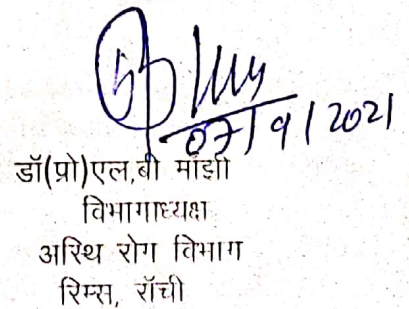 07/9/2021
डॉ(प्रो)एल,बी माँझी
विभागाध्यक्ष
अस्थि रोग विभाग
रिम्स, राँची